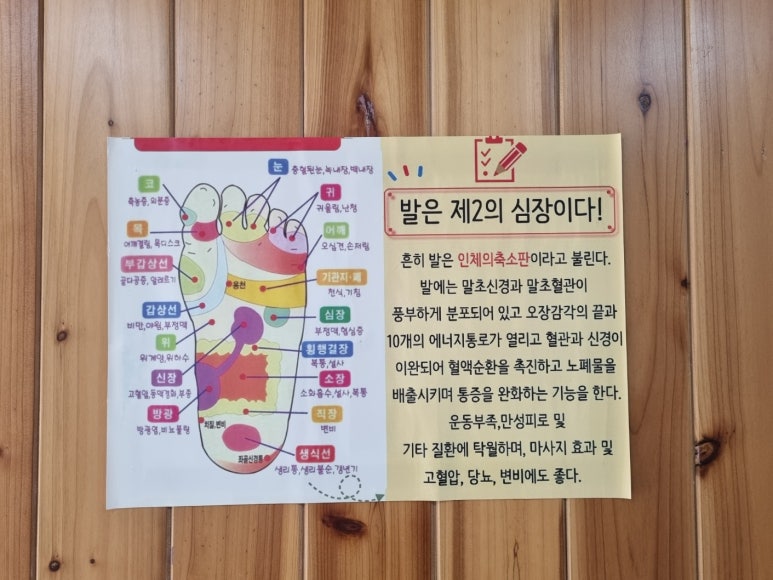 눈 충혈된눈,녹내장,백내장
코
축농증,외분증
귀
귀울림,난청
목
어깨결림, 목디스크
어깨
오십견,손저림
부갑상선
골다공증, 알레르기
용천
기관지·폐
천식,기침
갑상선
비만,야윔,부정맥
심장
부정맥,협심증
위
위계양,위하수
횡행결장
복통,설사
신장
고혈압,동맥경화,부종
소장
소화흡수,설사,복통
방광
방광염,비뇨불량
치질,변비
직장
변비
생식선
생리통,생리불순,갱년기
좌골신경통
발은 제2의 심장이다!
흔히 발은 인체의축소판이라고 불린다.
발에는 말초신경과 말초혈관이
풍부하게 분포되어 있고 오장감각의 끝과
10개의 에너지통로가 열리고 혈관과 신경이
이완되어 혈액순환을 촉진하고 노폐물을
배출시키며 통증을 완화하는 기능을 한다.
운동부족,만성피로 및
기타 질환에 탁월하며, 마사지 효과 및
고혈압, 당뇨, 변비에도 좋다.